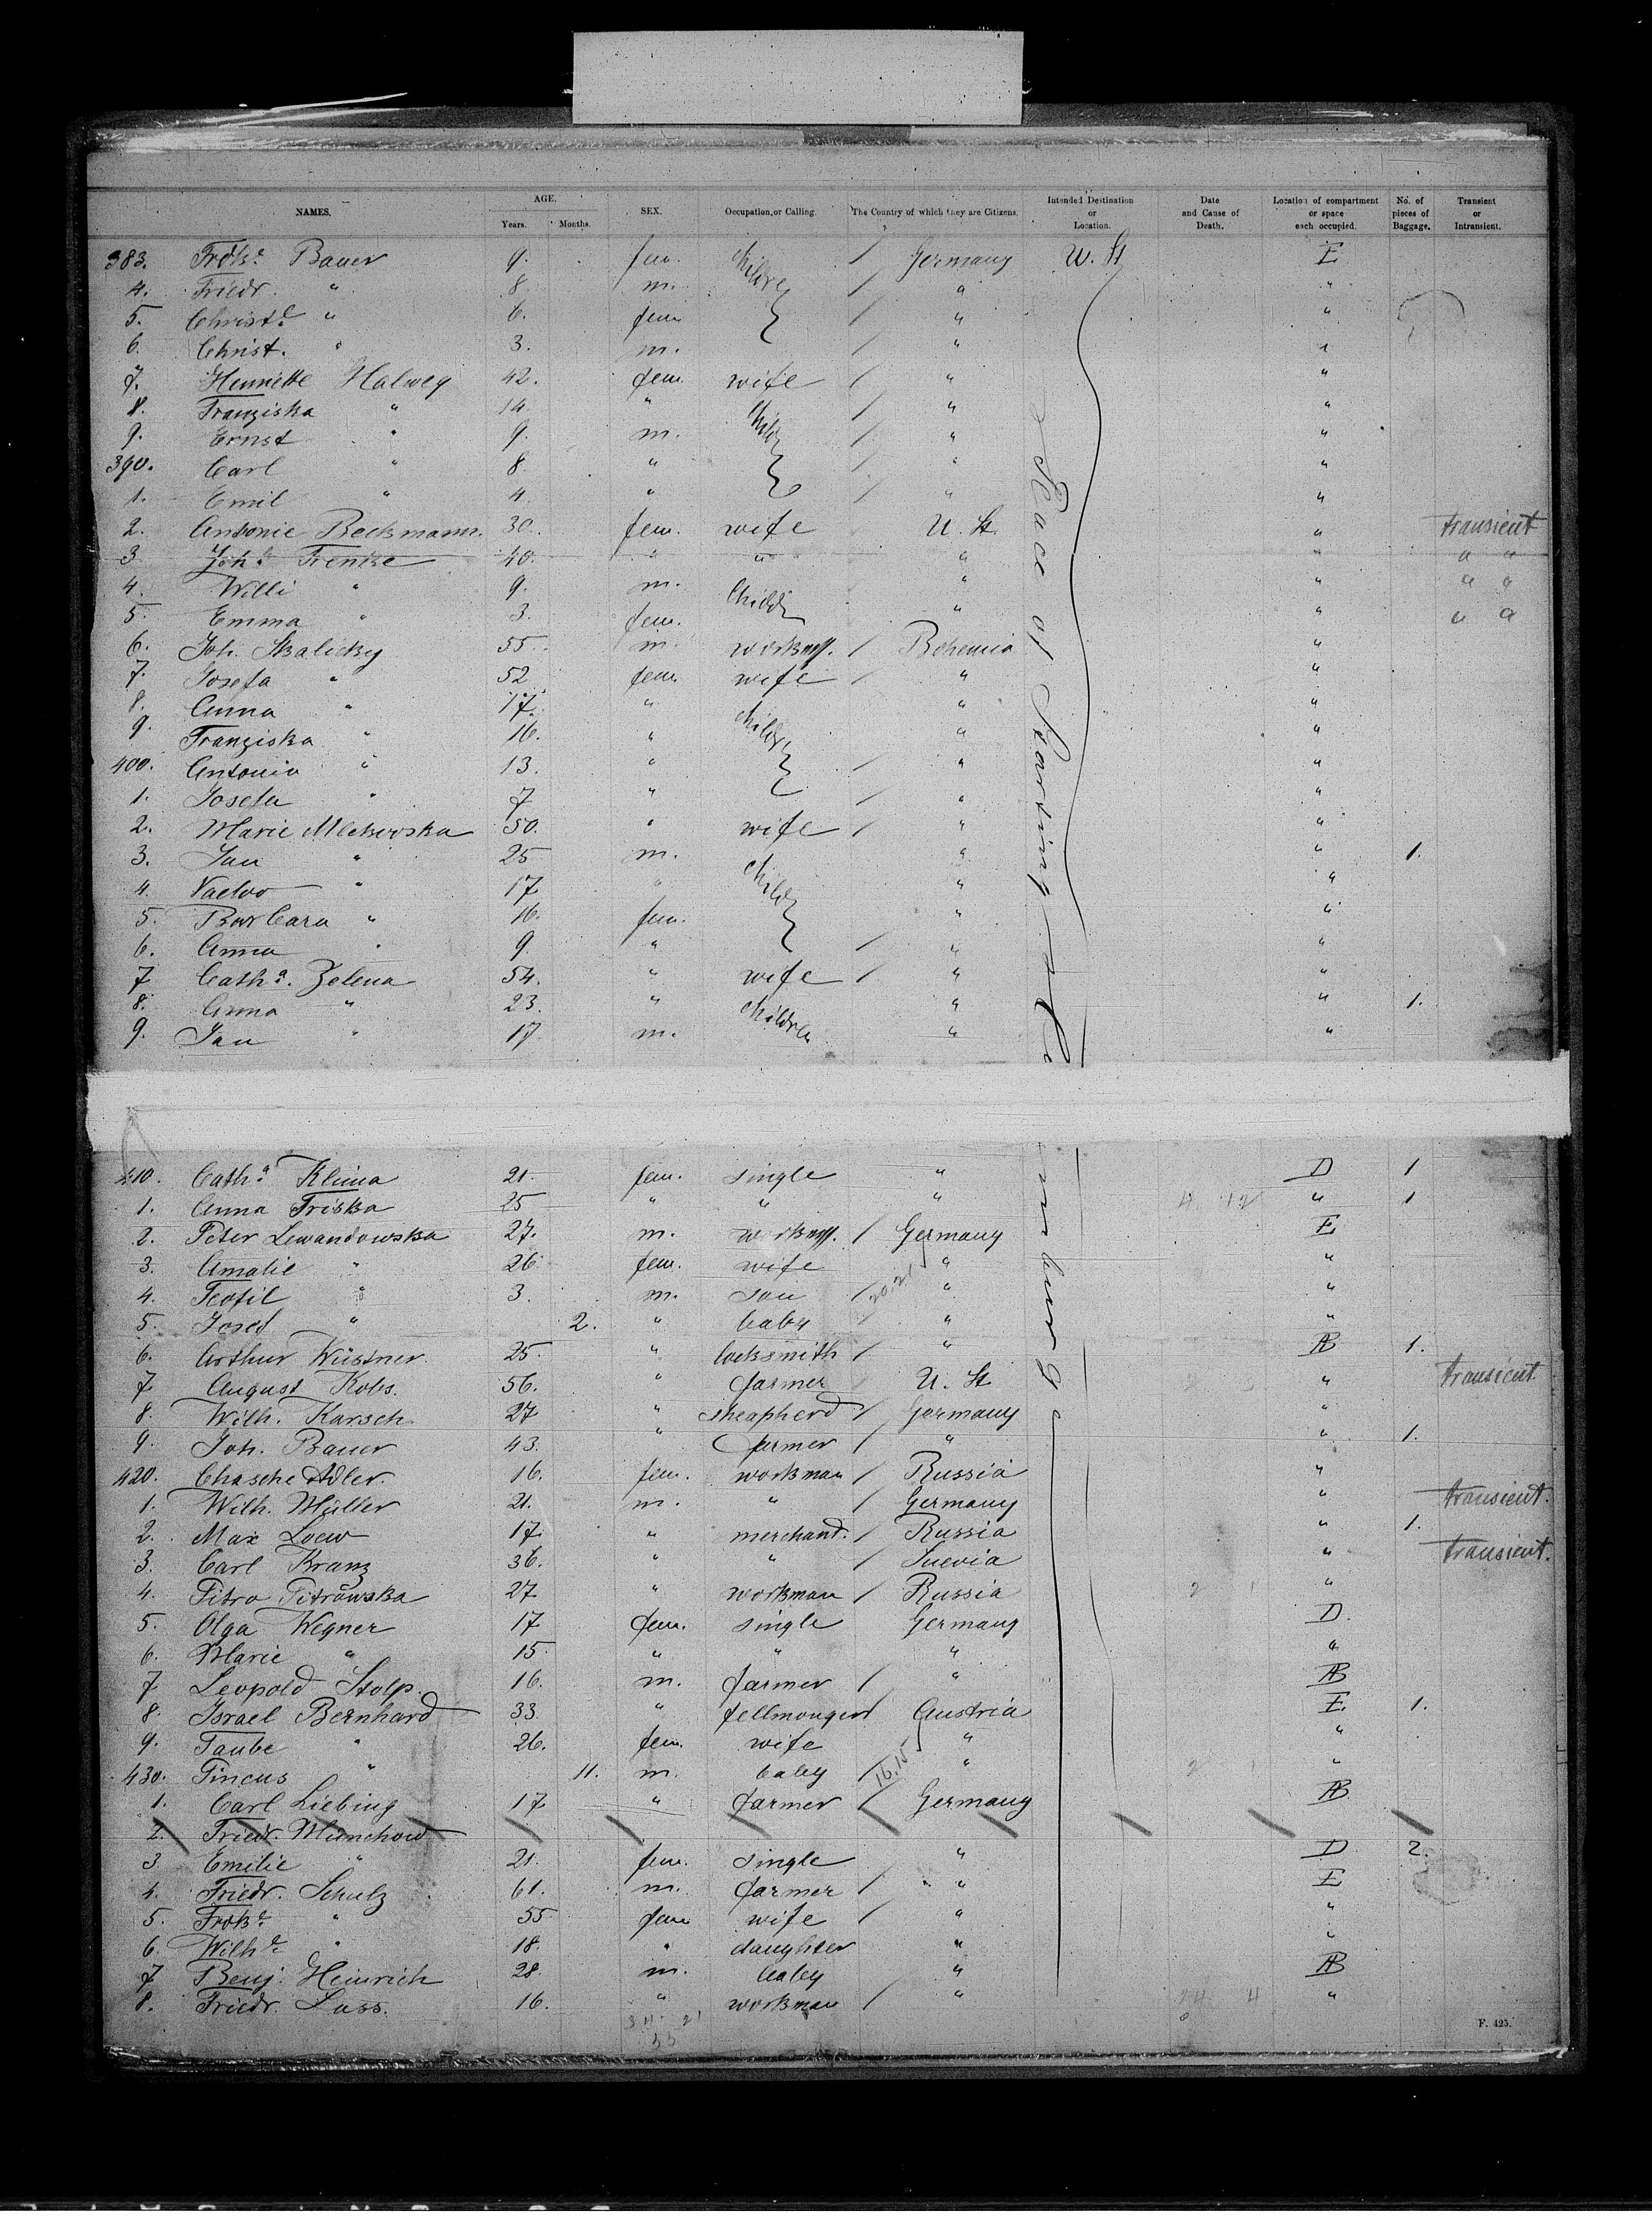 NAMES. AGE. Years. Months. SEX. Occupation, or Calling The Country of which they are Citizens. Intended Destination or Location. Date and Cause of Death. Location of compartment or space each occupied. No. of pieces of Baggage. Transient or Intransient.
383. Frdke Bauer 9. fem. Children / Germany U. St E
4. Friedr. " 8 m. / " "
5. Christe " 6. fem / " "
6. Christ. " 3. m. / " "
7. Henriette Halweg 42. fem. wife / " "
8. Franziska " 14. " Childr / " "
9. Ernst " 9. m. / " "
390. Carl " 8 " / " "
1. Emil " 4. " / " "
2. Antonie Beckmann. 30. fem. wife U. St. " transient
3 Johe Frenke 40. " " " " " "
4. Willi " 9. m. Childr " " " "
5. Emma " 3. fem. " " " "
6. Joh. Skalicky 55. m. workmn. / Bohemia "
7. Josefa " 52 fem. wife / " "
8. Anna " 17. " Childr " "
9. Franziska " 16. " " "
400. Antonia " 13. " / " "
1. Josefa " 7 " / " "
2. Marie Mlekovska 50. " wife / " "
3. Jan " 25 m. Childr " " 1.
4. " 17 " " "
5. Barbara " 16. fem. " "
6. Anna " 9. " / " "
7 Catha. Zelena 54. " wife / " "
8. Anna " 23. " Children " " 1.
9. Jan " 17 m. " "
Place of Starting
410. Catha Klima 21. fem. single " D 1
1. Anna Friska 25 " " " " 1
2. Peter Lewandowska 27. m. workmn. / Germany E
3. Amalie " 26 fem. wife " "
4. Teofil " 3. m. son / " "
5. Josef " 2. " baby / " "
6. Arthur Wüstner 25. " locksmith / " AB 1.
7 August Kobs. 56. " farmer U. St. " transient.
8. Wilh. Karsch 27 " sheapherd / Germany "
9. Joh. Bauer 43. " farmer / " " 1.
420. Chasche Adler. 16. fem. workman / Russia "
1. Wilh. Müller 21. m. " / Germany " transient.
2. Max Loew 17. " merchant. / Russia " 1.
3. Carl Kranz 36. " " / Suevia " transient.
4. Pitro Pitrowska 27 " workman / Russia "
5. Olga Wegner 17 fem. single Germany D.
6. Marie " 15. " " " "
7 Leopold Stolp. 16. m. farmer / " AB
8. Israel Bernhard 33. " fellmonger / Austria E. 1.
9. Taube " 26. fem. wife " "
430. Pincus " 11. m. baby / 16.15 " "
1. Carl Liebing 17 " farmer / Germany AB
2. Friedr. Münchow
3 Emilie " 21. fem. single " D 2.
4. Friedr. Schulz 61. m. farmer / " E
5. Frdke " 55 fem wife / " "
6. Wilhe " 18. " daughter " "
7 Benj. Heinrich 28. m. baby " AB
8. Friedr. Lass. 16. " workman / " "
F. 425.